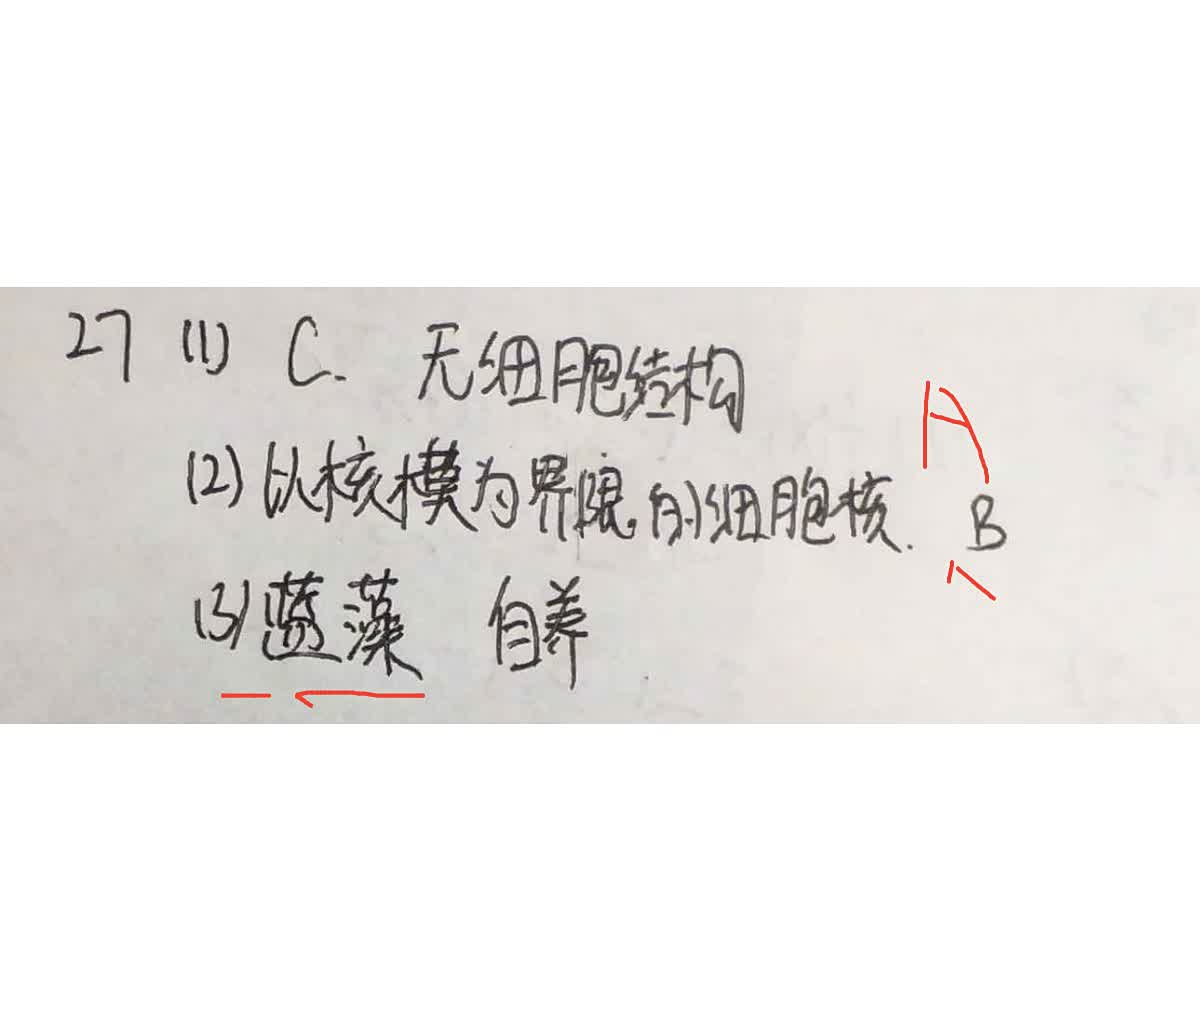 27 (1) C. 无细胞结构
A
(2) 以核模为界限的细胞核. B
(3) 蓝藻 自养